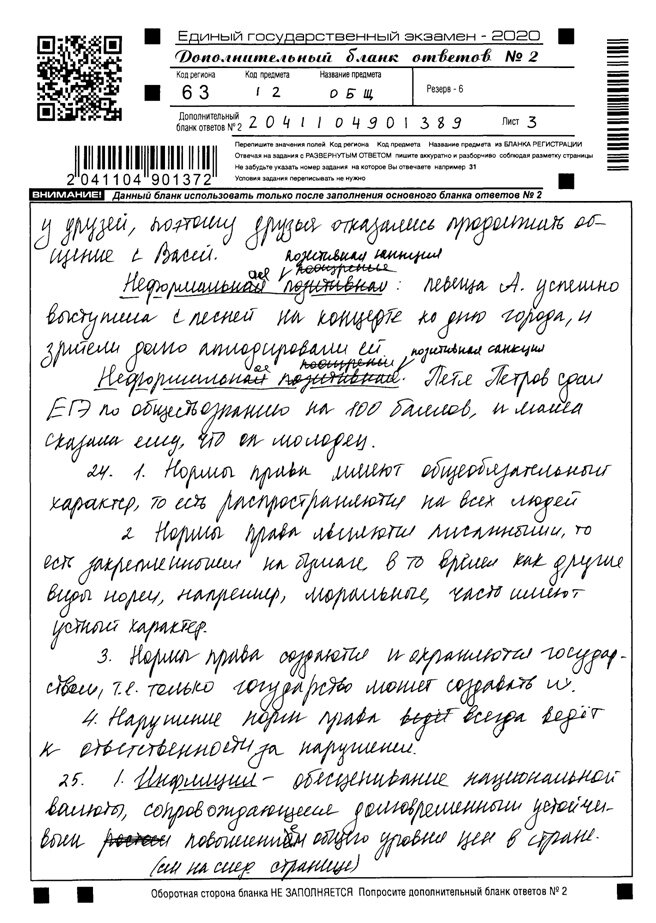 Единый государственный экзамен - 2020
Дополнительный бланк ответов № 2
Код региона Код предмета Название предмета
63 12 ОБЩ Резерв - 6
Дополнительный
бланк ответов № 2 2041104901389 Лист 3
Перепишите значения полей Код региона Код предмета Название предмета из БЛАНКА РЕГИСТРАЦИИ
Отвечая на задания с РАЗВЕРНУТЫМ ОТВЕТОМ пишите аккуратно и разборчиво соблюдая разметку страницы
Не забудьте указать номер задания на которое Вы отвечаете например 31
Условия задания переписывать не нужно
2041104901372
ВНИМАНИЕ! Данный бланк использовать только после заполнения основного бланка ответов № 2
у друзей, поэтому друзья отказались продолжить об-
щение с Васей.
позитивная санкция
ая поощрение
Неформальная позитивная: певица А. успешно
выступила с песней на концерте ко дню города, и
зрители долго аплодировали ей
ая поощрение позитивная санкция
Неформальная позитивная. Петя Петров сдал
ЕГЭ по обществознанию на 100 баллов, и мама
сказала ему, что он молодец.
24. 1. Нормы права имеют общеобязательный
характер, то есть распространяются на всех людей
2 Нормы права являются писанными, то
есть закрепленными на бумаге, в то время как другие
виды норм, например, моральные, часто имеют
устный характер.
3. Нормы права создаются и охраняются государ-
ством, т.е. только государство может создавать их.
4. Нарушение норм права ведёт всегда ведёт
к ответственности за нарушения.
25. 1. Инфляция - обесценивание национальной
валюты, сопровождающееся долговременным устойчи-
вым повышением общего уровня цен в стране.
(см на след странице)
Оборотная сторона бланка НЕ ЗАПОЛНЯЕТСЯ Попросите дополнительный бланк ответов № 2